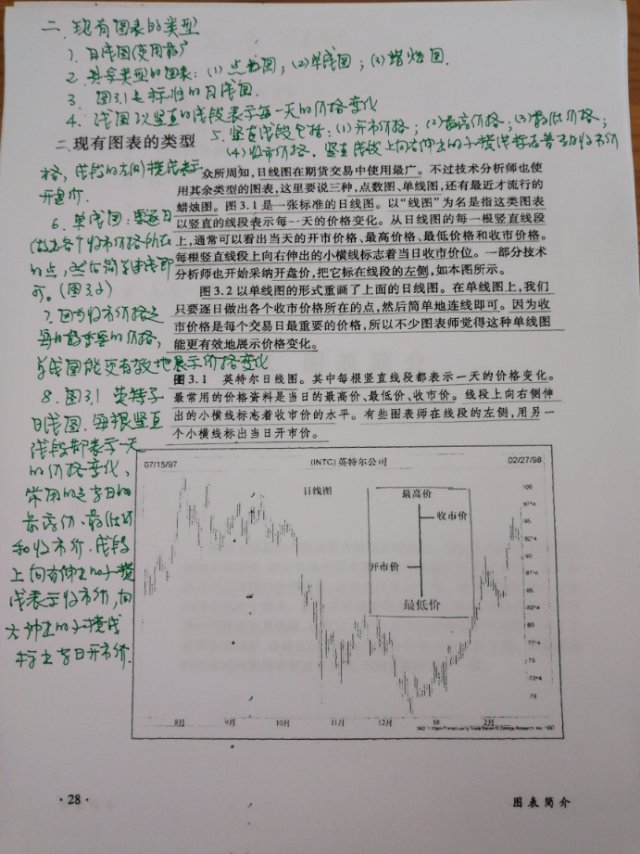 二. 现有图表的类型
1. 日线图使用最广
2. 其余类型的图表：(1) 点数图；(2) 单线图；(3) 蜡烛图.
3. 图3.1是标准的日线图.
4. 线图以竖直的线段表示每一天的价格变化
5. 竖直线段包括：(1) 开市价格；(2) 最高价格；(3) 最低价格；
(4) 收市价格. 竖直线段上向右伸出的小横线标志着当日收市价
格，线段的左侧小横线表示
开盘价.
6. 单线图：要逐日
做出各个收市价格所在
的点，然后简单连线即
可。(图3.2)
7. 因为收市价格是
每日最重要的价格，
单线图能更有效地展示价格变化
8. 图3.1 英特尔
日线图. 每根竖直
线段都表示一天
的价格变化，
常用的是当日的
最高价、最低价
和收市价. 线段
上向右伸出的小横
线表示收市价，向
左伸出的小横线
标出当日开市价.
二.现有图表的类型
众所周知，日线图在期货交易中使用最广。不过技术分析师也使
用其余类型的图表，这里要说三种，点数图、单线图，还有最近才流行的
蜡烛图。图 3.1 是一张标准的日线图。以“线图”为名是指这类图表
以竖直的线段表示每一天的价格变化。从日线图的每一根竖直线段
上，通常可以看出当天的开市价格、最高价格、最低价格和收市价格。
每根竖直线段上向右伸出的小横线标志着当日收市价位。一部分技术
分析师也开始采纳开盘价，把它标在线段的左侧，如本图所示。
图 3.2 以单线图的形式重画了上面的日线图。在单线图上，我们
只要逐日做出各个收市价格所在的点，然后简单地连线即可。因为收
市价格是每个交易日最重要的价格，所以不少图表师觉得这种单线图
能更有效地展示价格变化。
图 3.1 英特尔日线图。其中每根竖直线段都表示一天的价格变化。
最常用的价格资料是当日的最高价、最低价、收市价。线段上向右侧伸
出的小横线标志着收市价的水平。有些图表师在线段的左侧，用另一
个小横线标出当日开市价。
07/15/97 (INTC) 英特尔公司 02/27/98
日线图
最高价
收市价
开市价
最低价
105
85
75
8月 9月 10月 11月 12月 98 2月
·28·
图 表 简 介